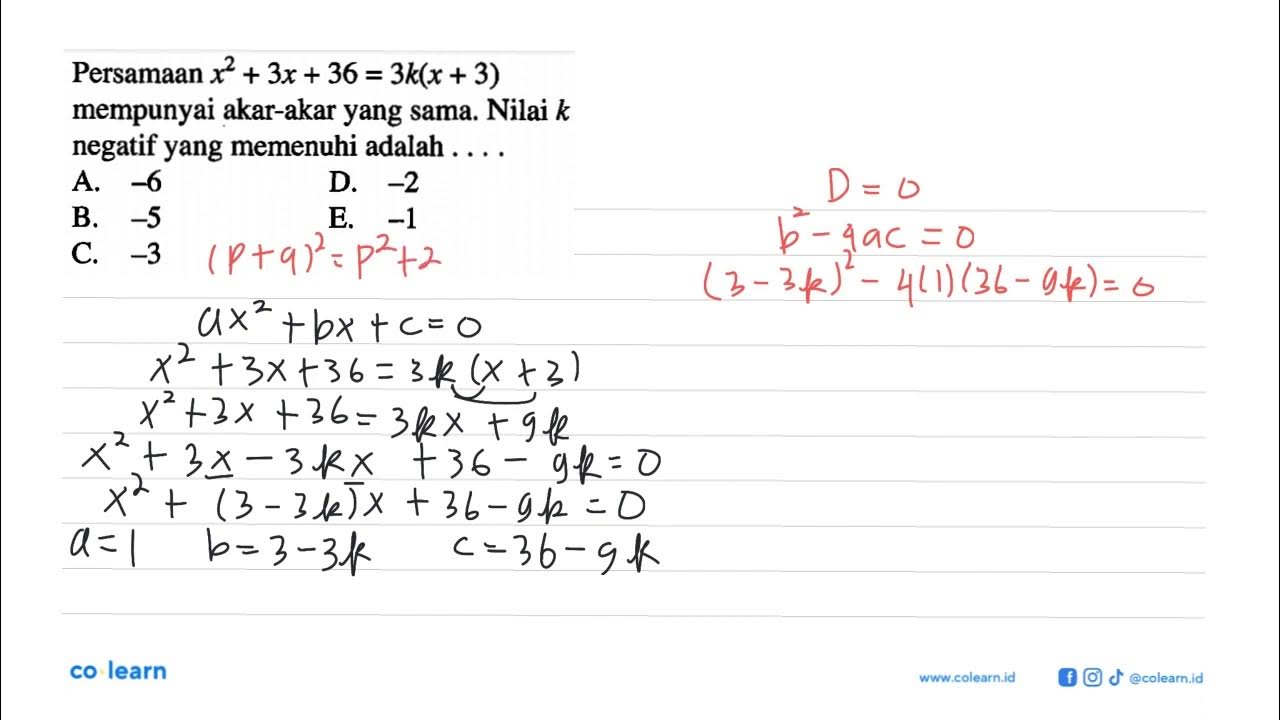 Persamaan x² + 3x + 36 = 3k(x + 3)
mempunyai akar-akar yang sama. Nilai k
negatif yang memenuhi adalah . . . .
A. –6 D. –2
B. –5 E. –1
C. –3
(p+q)² = p²+2
ax² + bx + c = 0
x² + 3x + 36 = 3k (x + 3)
x² + 3x + 36 = 3kx + 9k
x² + 3x – 3kx + 36 – 9k = 0
x² + (3 – 3k)x + 36 – 9k = 0
a = 1 b = 3 – 3k c = 36 – 9k
D = 0
b² – 4ac = 0
(3 – 3k)² – 4(1)(36 – 9k) = 0
co learn
www.colearn.id
@colearn.id